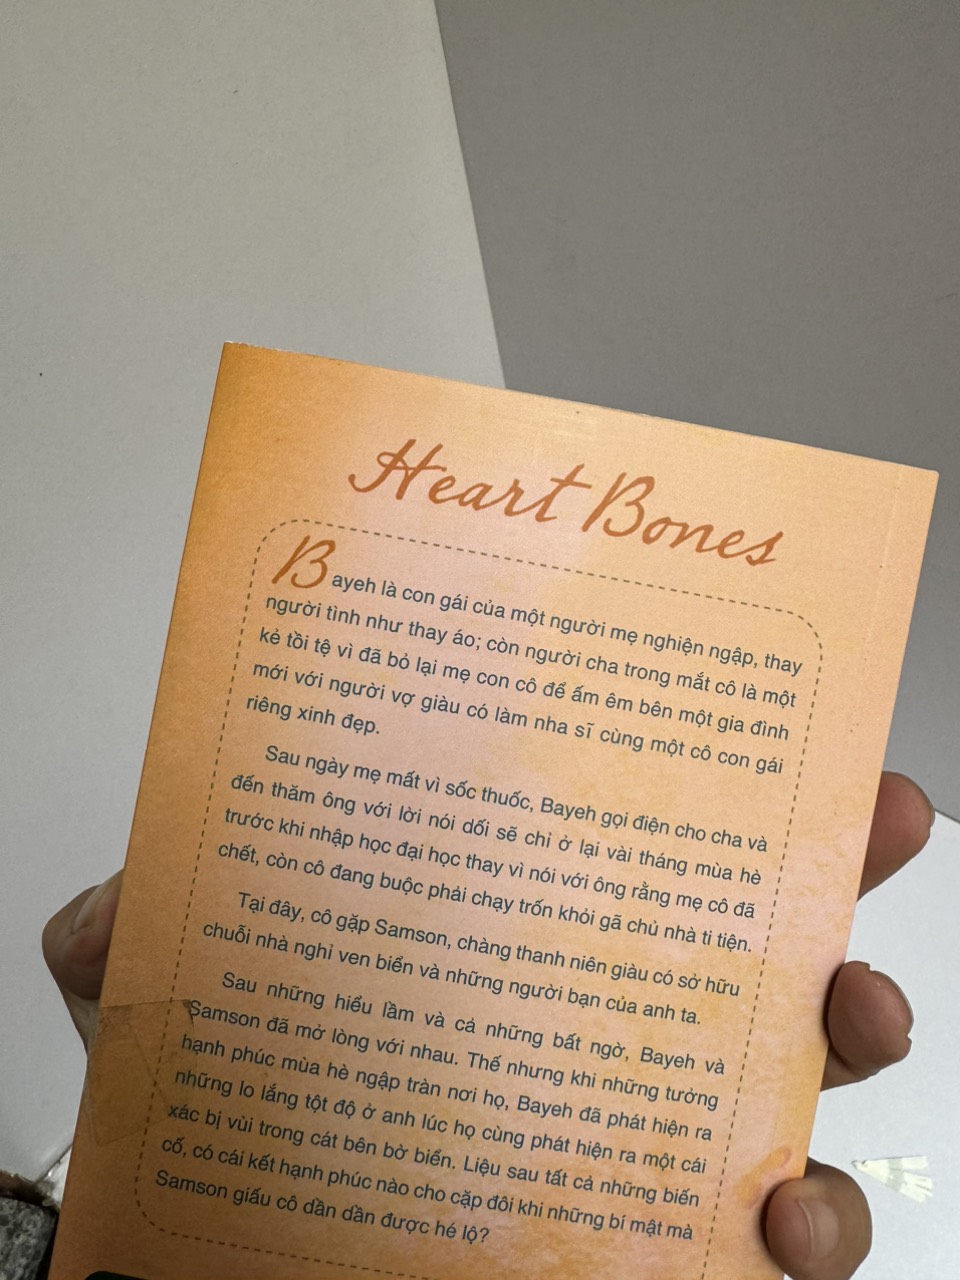 Heart Bones
Bayeh là con gái của một người mẹ nghiện ngập, thay
người tình như thay áo; còn người cha trong mắt cô là một
kẻ tồi tệ vì đã bỏ lại mẹ con cô để ấm êm bên một gia đình
mới với người vợ giàu có làm nha sĩ cùng một cô con gái
riêng xinh đẹp.
Sau ngày mẹ mất vì sốc thuốc, Bayeh gọi điện cho cha và
đến thăm ông với lời nói dối sẽ chỉ ở lại vài tháng mùa hè
trước khi nhập học đại học thay vì nói với ông rằng mẹ cô đã
chết, còn cô đang buộc phải chạy trốn khỏi gã chủ nhà ti tiện.
Tại đây, cô gặp Samson, chàng thanh niên giàu có sở hữu
chuỗi nhà nghỉ ven biển và những người bạn của anh ta.
Sau những hiểu lầm và cả những bất ngờ, Bayeh và
Samson đã mở lòng với nhau. Thế nhưng khi những tưởng
hạnh phúc mùa hè ngập tràn nơi họ, Bayeh đã phát hiện ra
những lo lắng tột độ ở anh lúc họ cùng phát hiện ra một cái
xác bị vùi trong cát bên bờ biển. Liệu sau tất cả những biến
cố, có cái kết hạnh phúc nào cho cặp đôi khi những bí mật mà
Samson giấu cô dần dần được hé lộ?